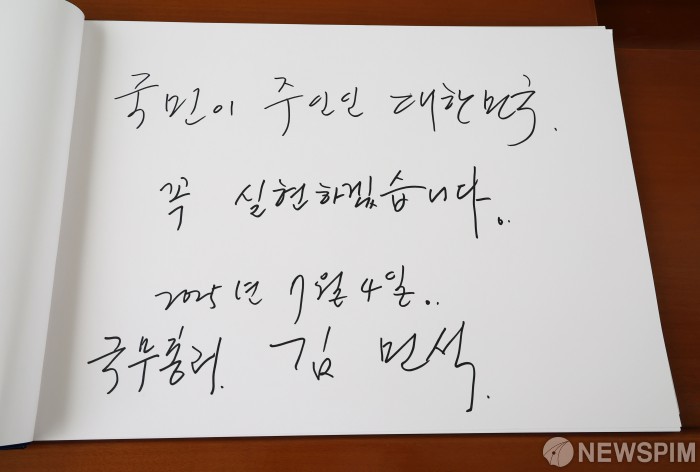 국민이 주인인 대한민국.
꼭 실현하겠습니다.
2025년 7월 4일..
국무총리. 김 민석.
NEWSPIM